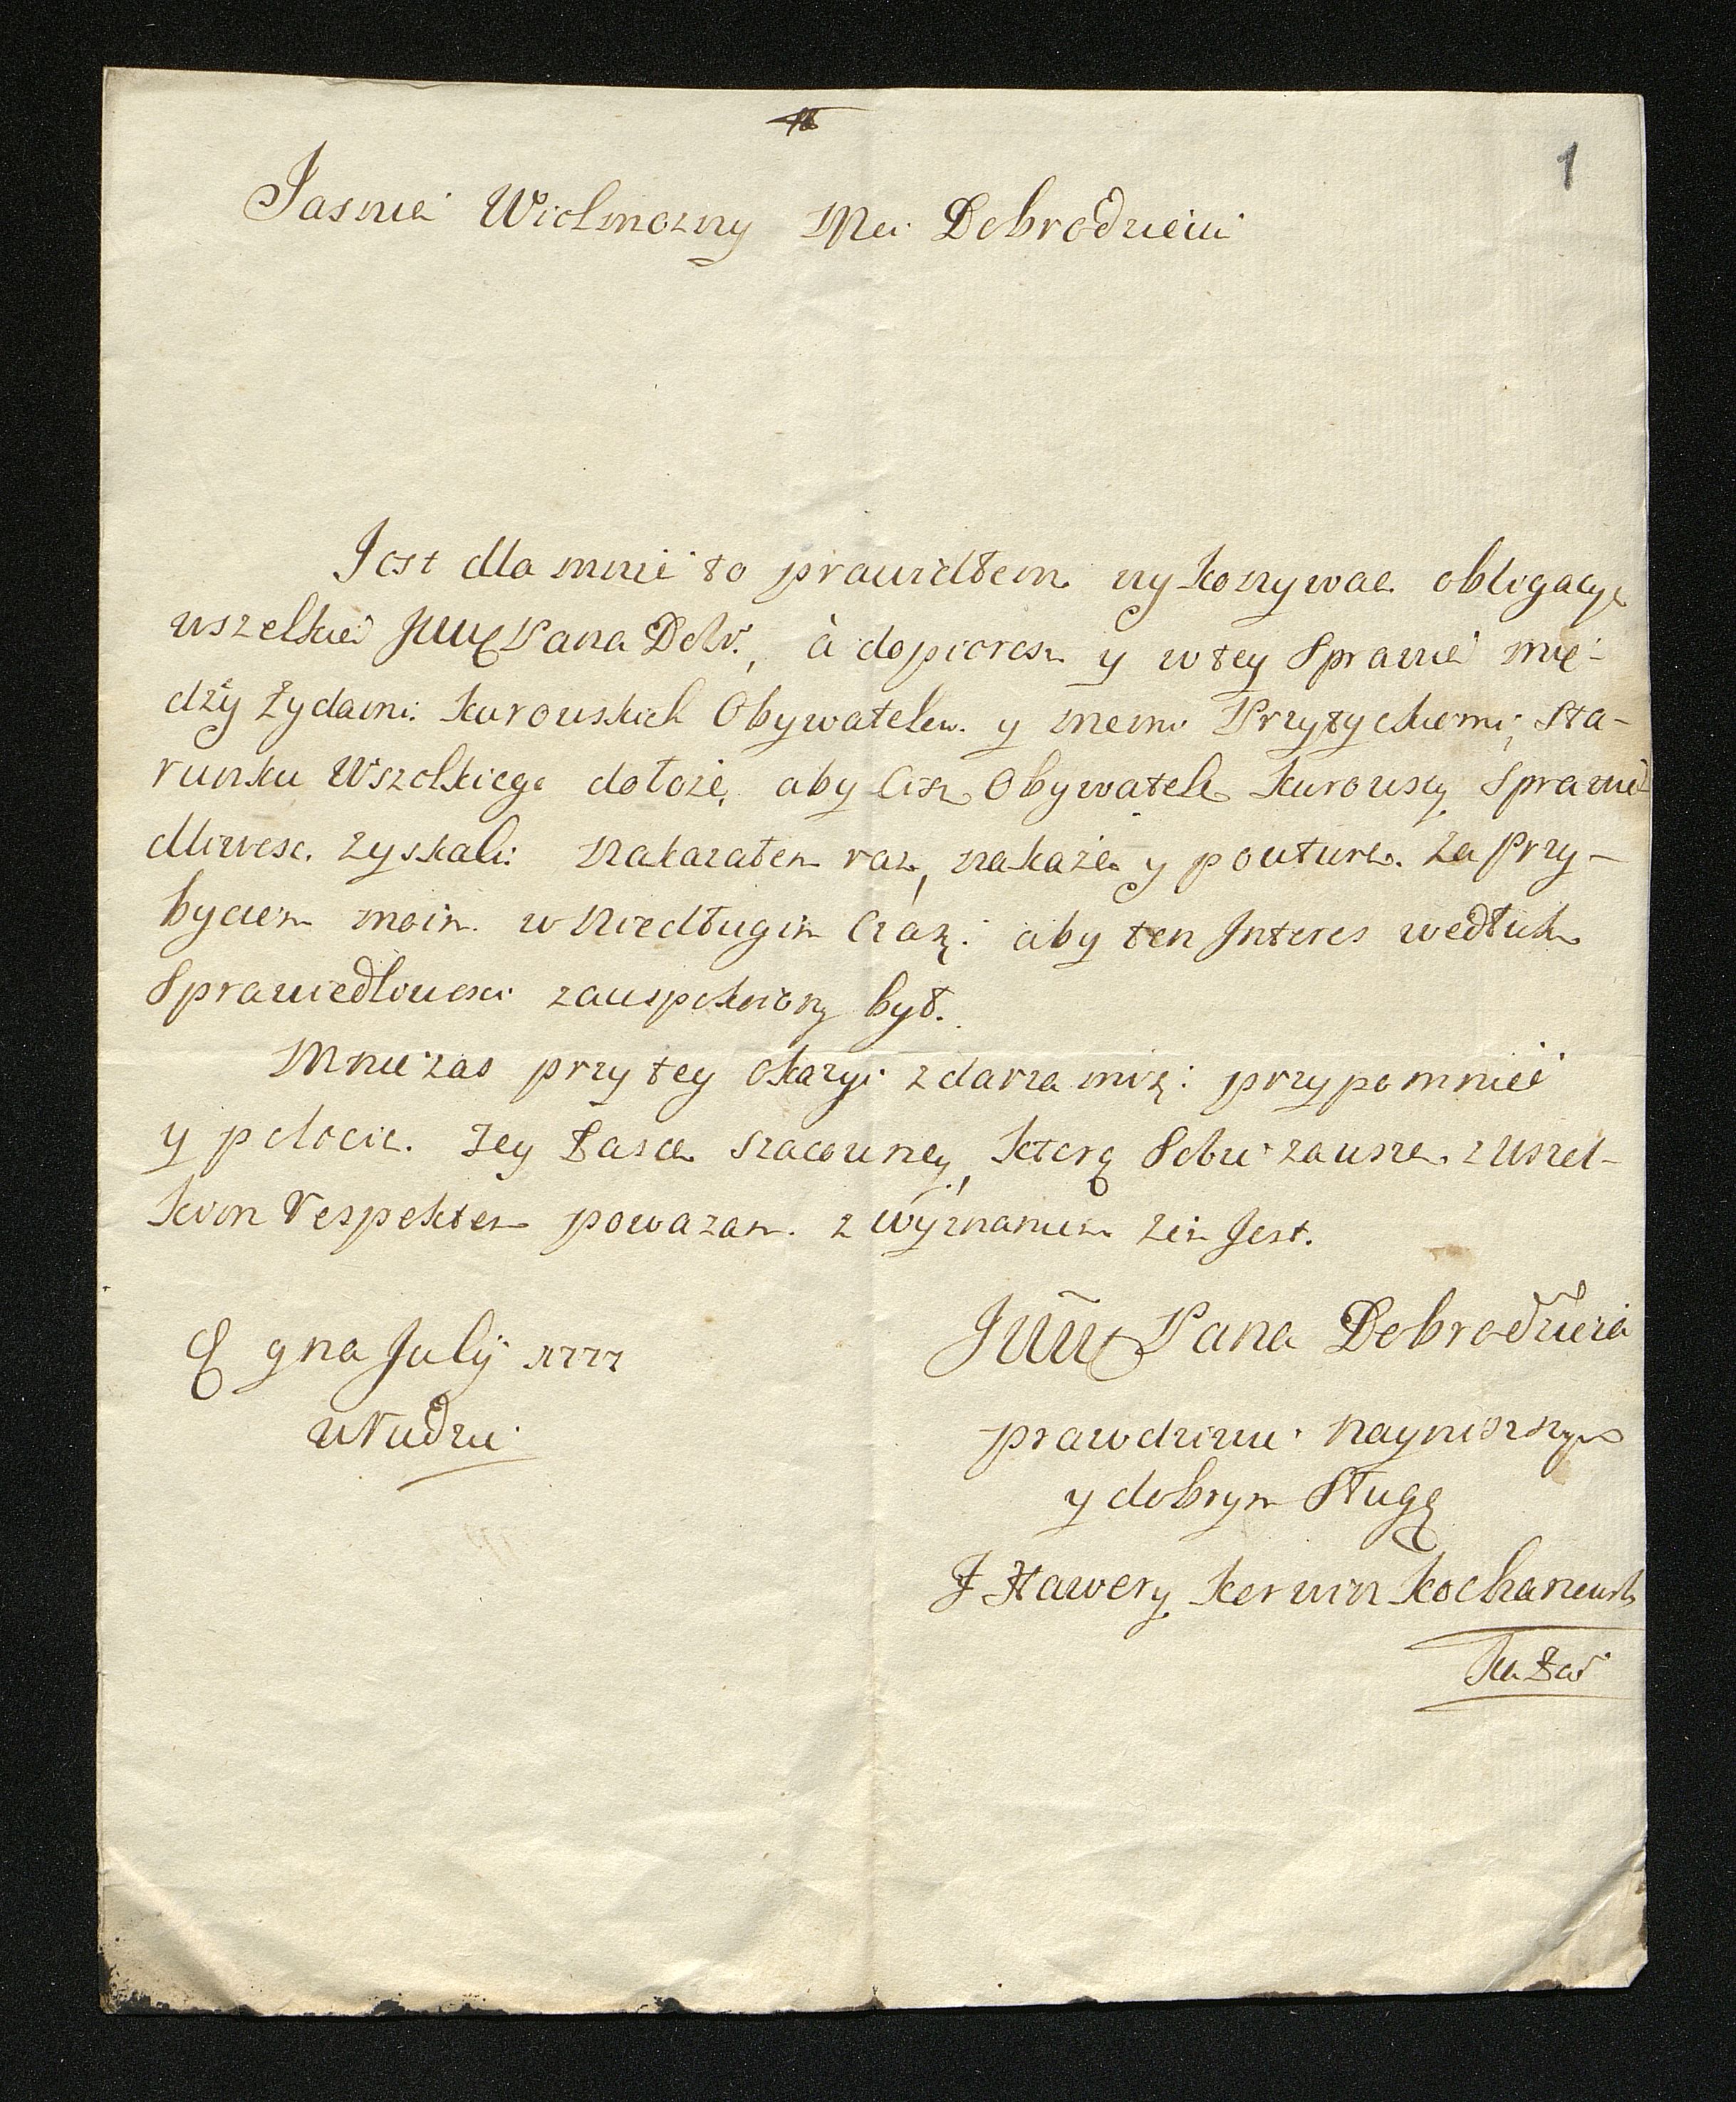 1
Jasnie Wielmozny Mci Dobrodzieiu
Jest dla mnie to prawidłem wykonywac obligacye
wszelkie JWW Pana Dobr., à dopieroz y w tey Sprawie mię-
dzy Żydami Kurowskich Obywatelow y memi Przytyckiemi, Sta-
runku Wszelkiego dołożę, aby Ciz Obywatele Kurowscy Sprawie
dliwosc zyskali nakazałem raz, nakaże y powturę za Przy-
byciem moim w Niedługim Czasie aby ten Jnteres wedłuk
Sprawiedlowosci zauspokoiony był.
Mnie zas przy tey okazyi zdarza mię przypomnieć
y polocic Jey Łasce szacowney, ktorą Sobie zawsze z wszel-
kim respektem powazam z wyznaniem żem Jest.
JWW Pana Dobrodzieia
9na July 1777
w Rudzie
prawdziwie nayniższym
y dobrym Sługą
F Xawery Korwin Kochanowski